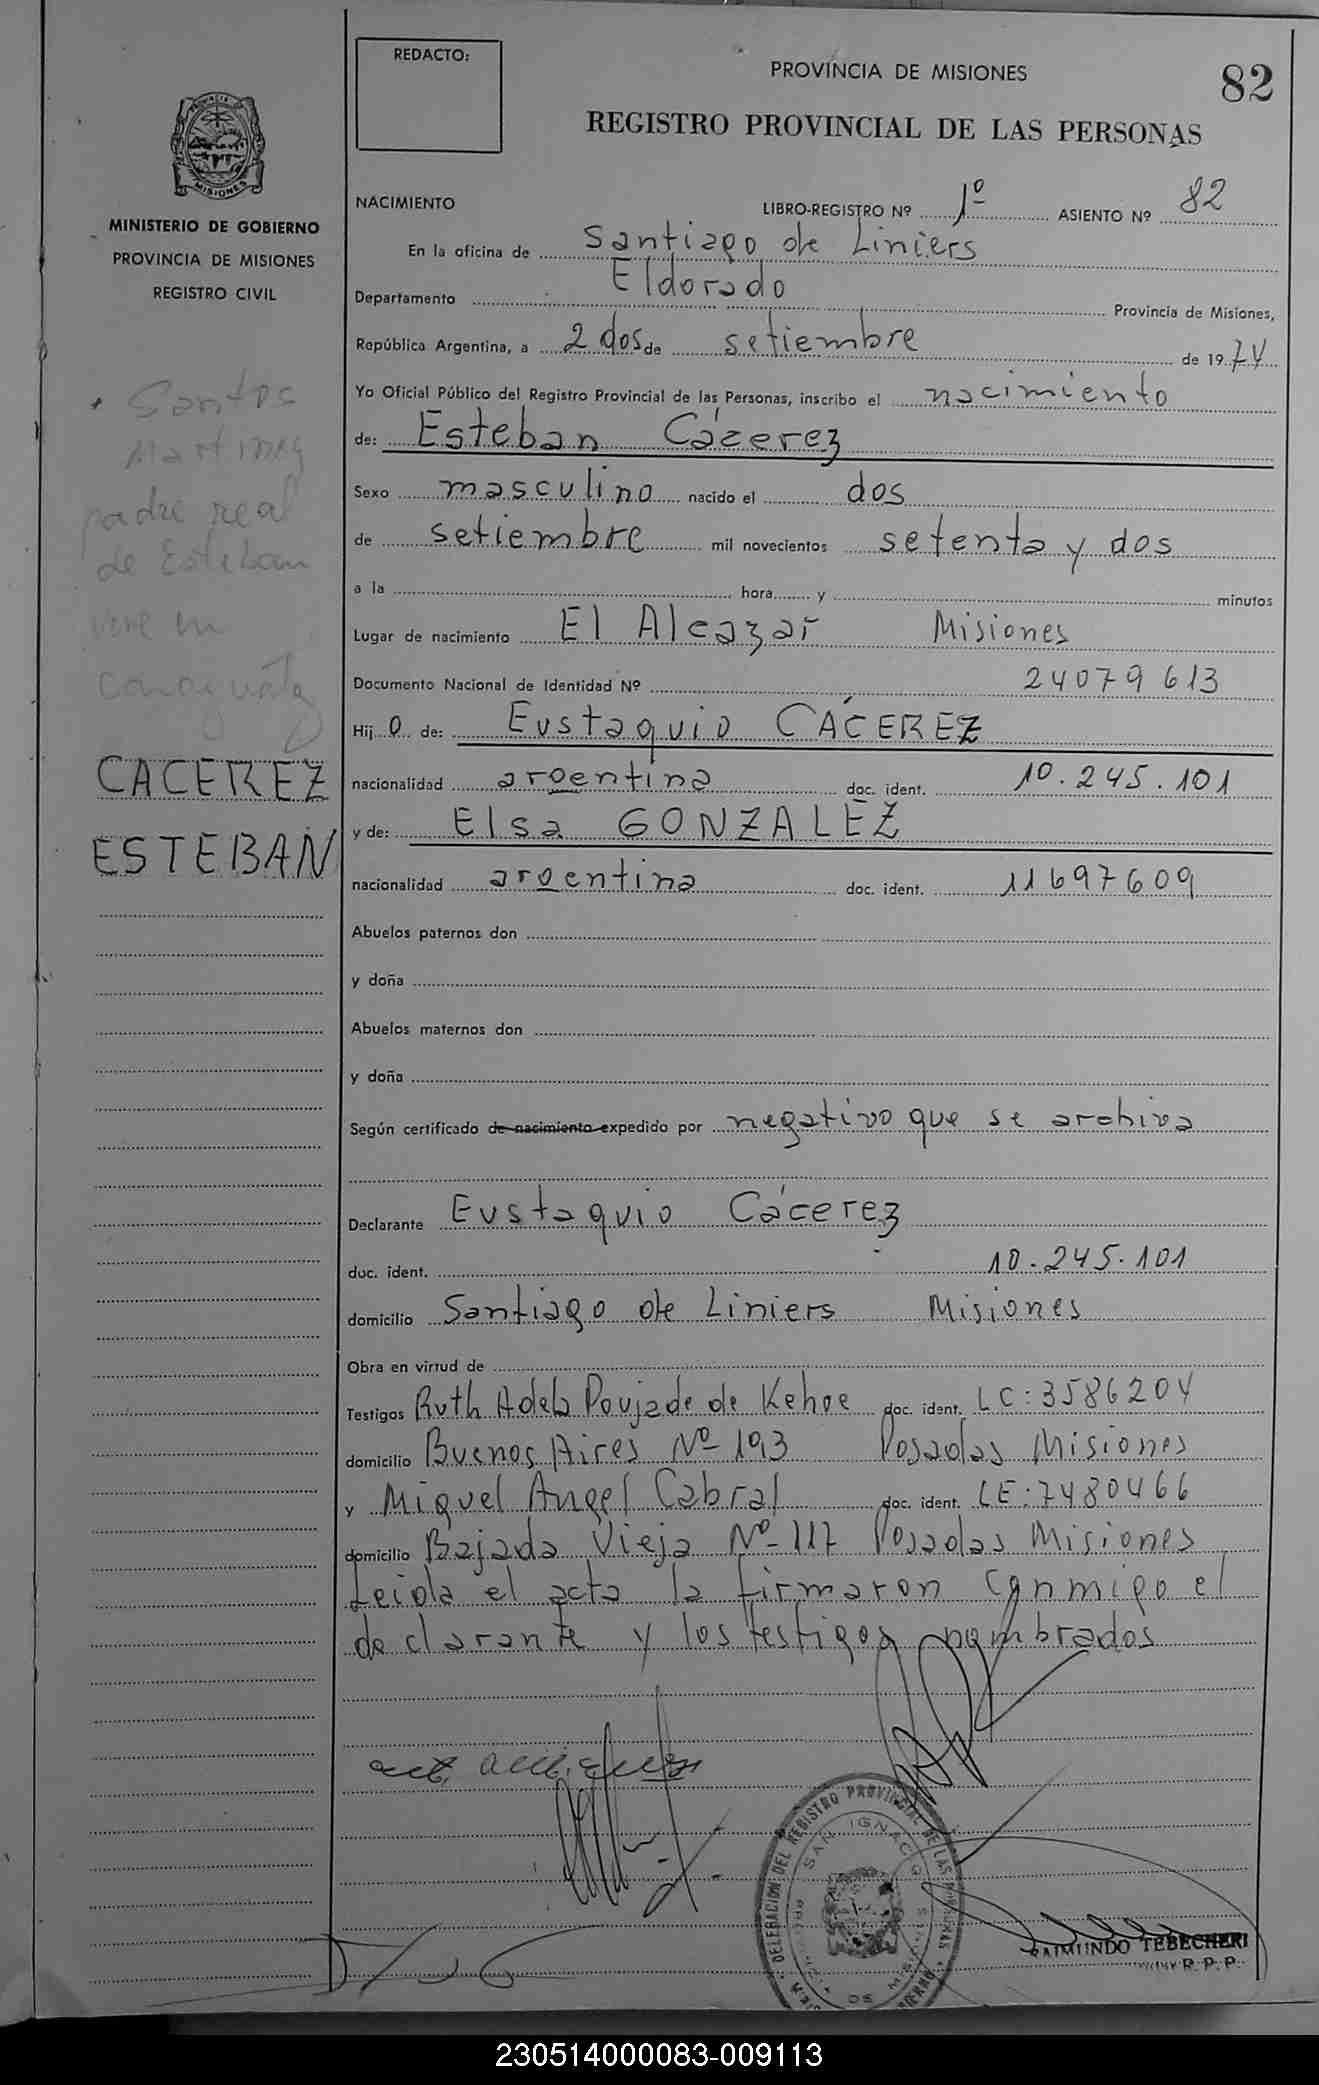 REDACTO:
PROVINCIA DE MISIONES
82
REGISTRO PROVINCIAL DE LAS PERSONAS
MISIONES
MINISTERIO DE GOBIERNO
PROVINCIA DE MISIONES
REGISTRO CIVIL
NACIMIENTO
LIBRO-REGISTRO Nº 1º ASIENTO Nº 82
En la oficina de Santiago de Liniers
Departamento Eldorado Provincia de Misiones,
República Argentina, a 2 dos de setiembre de 1974
Yo Oficial Público del Registro Provincial de las Personas, inscribo el nacimiento
de: Esteban Cácerez
Sexo masculino nacido el dos
de setiembre mil novecientos setenta y dos
a la hora y minutos
Lugar de nacimiento El Alcazar Misiones
Documento Nacional de Identidad Nº 24079613
Hijo de: Eustaquio CÁCEREZ
nacionalidad argentina doc. ident. 10.245.101
y de: Elsa GONZALEZ
nacionalidad argentina doc. ident. 11697609
Abuelos paternos don
y doña
Abuelos maternos don
y doña
Según certificado de nacimiento expedido por negativo que se archiva
Declarante Eustaquio Cácerez
doc. ident. 10.245.101
domicilio Santiago de Liniers Misiones
Obra en virtud de
Testigos Ruth Adela Poujade de Kehoe doc. ident. LC: 3586204
domicilio Buenos Aires Nº 193 Posadas Misiones
y Miguel Angel Cabral doc. ident. LE: 7480466
domicilio Bajada Vieja Nº 117 Posadas Misiones
Leida el acta la firmaron conmigo el
declarante y los testigos nombrados
Santos
Martinez
padre real
de Esteban
vive en
Caraguatay
CACEREZ
ESTEBAN
DELEGACION DEL REGISTRO PROVINCIAL DE LAS PERSONAS
SAN IGNACIO
RAIMUNDO TEBECHERI
R. P. P.
230514000083-009113